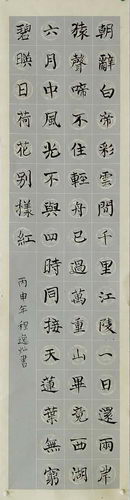 朝辭白帝彩雲間千里江陵一日還兩岸
猿聲啼不住輕舟已過萬重山畢竟西湖
六月中風光不與四時同接天蓮葉無窮
碧暎日荷花别樣紅
丙申年程書